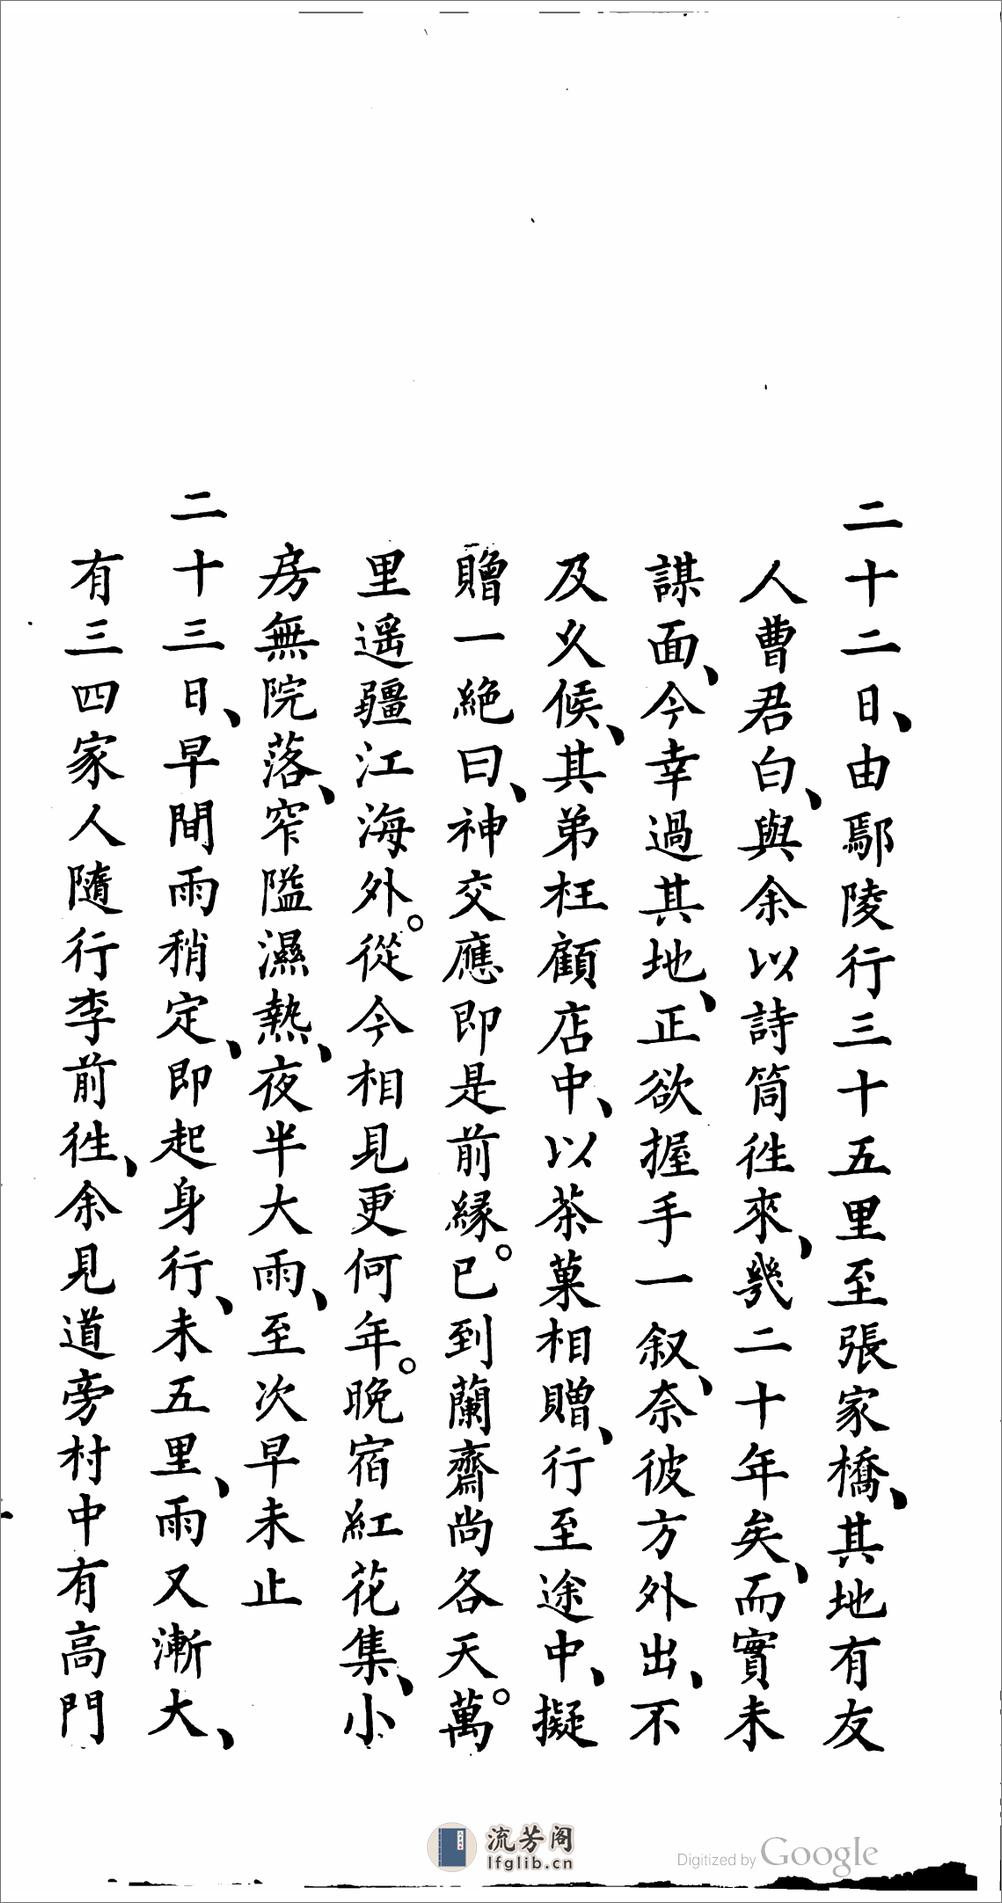 二十二日、由鄢陵行三十五里至張家橋、其地有友
人曹君白、與余以詩筒徃來、幾二十年矣、而實未
謀面、今幸過其地、正欲握手一叙、奈彼方外出、不
及久候、其弟枉顧店中、以茶菓相贈、行至途中、擬
贈一絶曰、神交應即是前緣。已到蘭齋尚各天。萬
里遥疆江海外。從今相見更何年。晚宿紅花集、小
房無院落、窄隘濕熱、夜半大雨、至次早未止
二十三日、早間雨稍定、即起身行、未五里、雨又漸大、
有三四家人隨行李前徃、余見道旁村中有高門
流芳阁
lfglib.cn
Digitized by Google